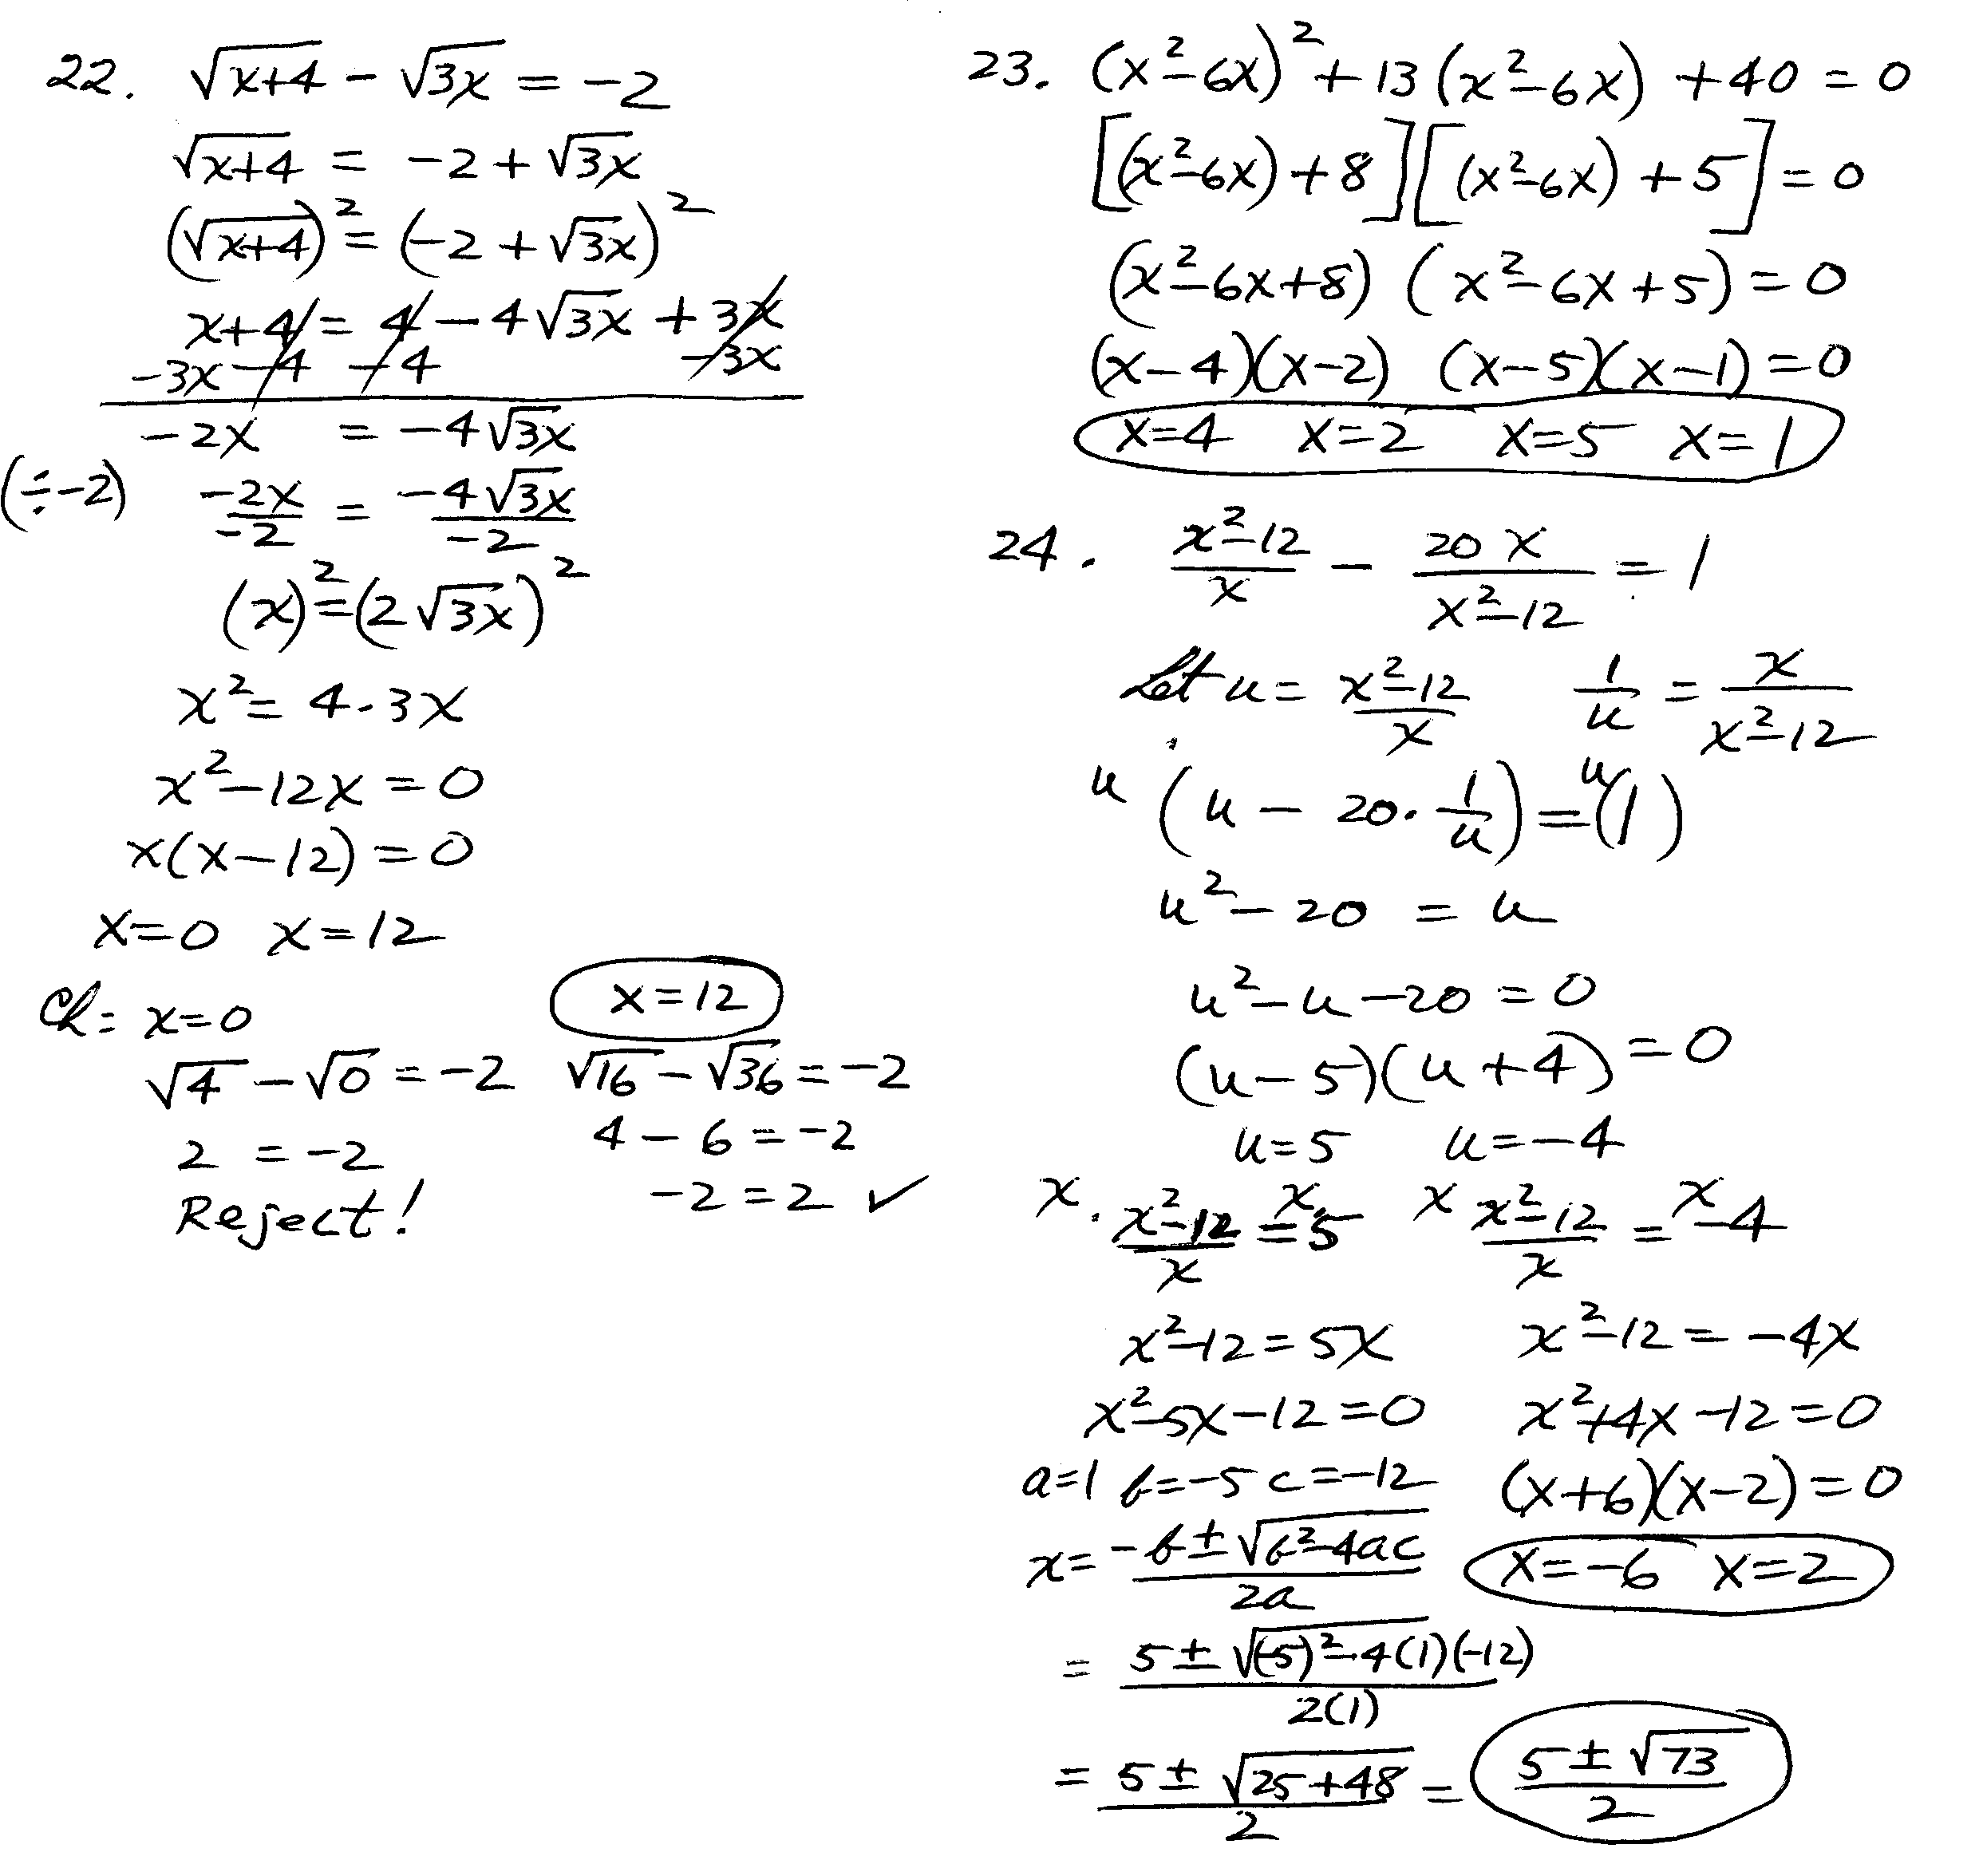 22. √(x+4) - √(3x) = -2
√(x+4) = -2 + √(3x)
(√(x+4))² = (-2 + √(3x))²
x+4 = 4 - 4√(3x) + 3x
-3x -4 -4 -3x
-2x = -4√(3x)
(÷-2) -2x/-2 = -4√(3x)/-2
(x)² = (2√(3x))²
x² = 4·3x
x² - 12x = 0
x(x-12) = 0
x=0 x=12
Ch: x=0 x=12
√4 - √0 = -2 √16 - √36 = -2
2 = -2 4 - 6 = -2
Reject! -2 = 2 ✓
23. (x²-6x)² + 13(x²-6x) + 40 = 0
[(x²-6x)+8][(x²-6x)+5] = 0
(x²-6x+8) (x²-6x+5) = 0
(x-4)(x-2) (x-5)(x-1) = 0
x=4 x=2 x=5 x=1
24. (x²-12)/x - 20x/(x²-12) = 1
Let u = (x²-12)/x 1/u = x/(x²-12)
u(u - 20·1/u) = u(1)
u² - 20 = u
u² - u - 20 = 0
(u-5)(u+4) = 0
u=5 u=-4
x· (x²-12)/x = x·5 x (x²-12)/x = x -4
x²-12 = 5x x²-12 = -4x
x²-5x-12=0 x²+4x-12=0
a=1 b=-5 c=-12 (x+6)(x-2)=0
x = (-b±√(b²-4ac))/2a x=-6 x=2
= (5±√((-5)²-4(1)(-12)))/2(1)
= (5±√(25+48))/2 = (5±√73)/2